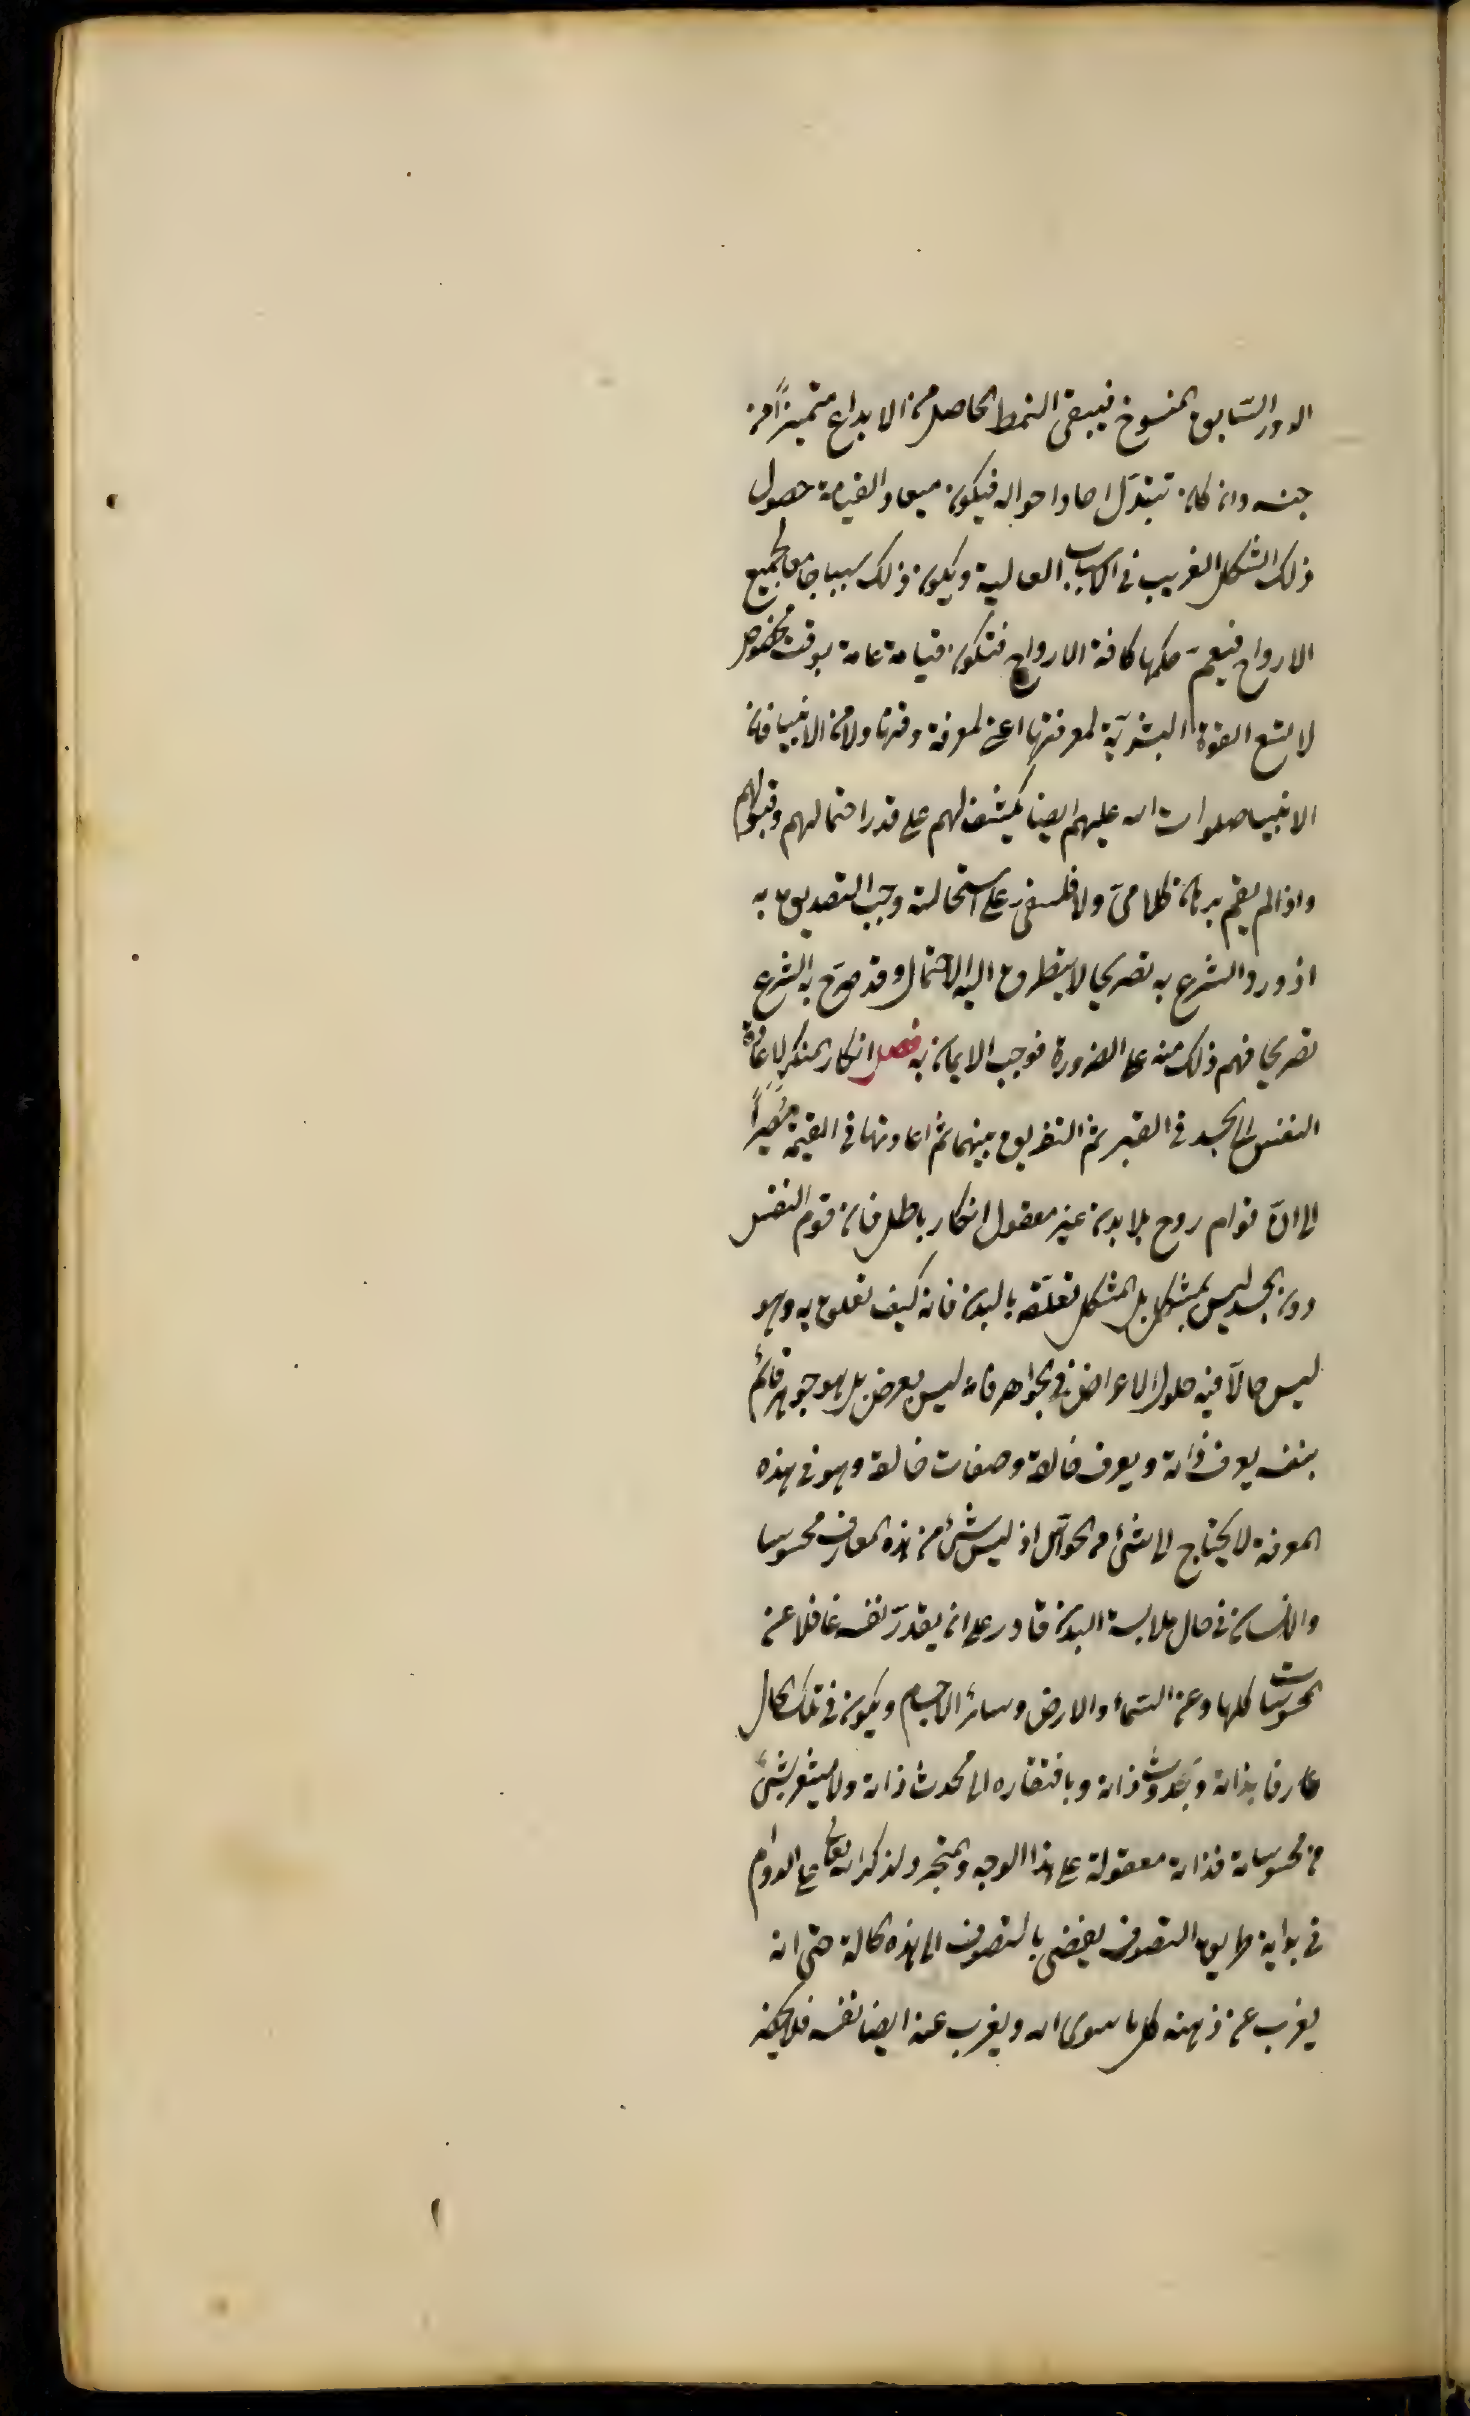 الدور السّابق المنسوخ فيبقى النمط الحاصل من الابداع متميزاً من
جنسه وان كان تتبدّل احاد احواله فيكون ميعاد القيامة حصول
ذلك الشكل الغريب فى الاسباب العالية ويكون ذلك سببا جامعا لجميع
الارواح فيعمّ حكمها كافة الارواح فتكون قيامة عامة بوقت مخصوص
لا تتسع القوة البشريّة لمعرفتها اعنى لمعرفة وقتها ولا من الانبيا فان
الانبيا صلوات الله عليهم ايضا يكشف لهم على قدر احتمالهم وقبولهم
واذا لم يقم برهان كلامىّ ولا فلسفىّ على استحالته وجب التصديق به
اذ ورد الشرع به تصريحا لا يتطرق اليه الاحتمال وقد صرّح به الشرع
تصريحا فهم ذلك منه على الضرورة فوجب الايمان به فصل انكار المنكر لاعادة
النفس الى الجسد فى القبر ثم التفريق بينهما ثم اعادتها فى القيمة مُصيراً
الى انّ قوام روح بلا بدن غير معقول انكار باطل فان قوام النفس
دون الجسد ليس بمشكل بل المشكل تعلّقه بالبدن فانه كيف تعلق به وهو
ليس حالاّ فيه حلول الاعراض فى الجواهر فانه ليس بعرض بل هو جوهر قائم
بنفسه يعرف ذاته ويعرف خالقه وصفات خالقه وهو فى هذه
المعرفة لا يحتاج الى شئ من الحواسّ اذ ليس شئ من هذه المعارف محسوسا
والانسان فى حال ملابسة البدن قادر على ان يقدّر نفسه غافلا عن
المحسوسات كلها وعن السّماء والارض وسائر الاجسام ويكون فى تلك الحال
عارفا بذاته وبحدوث ذاته وبافتقاره الى محدث ذاته ولا يشعر بشئ
من محسوساته فذاته معقولة على هذا الوجه والمتجرد لذكر الله تعالى على الدوام
فى بداية طريق التصوف يفضى بالتصوف الى هذه الحالة حتى انه
يغرب عن ذهنه كل ما سوى الله ويغرب عنه ايضا نفسه فلا يمكنه